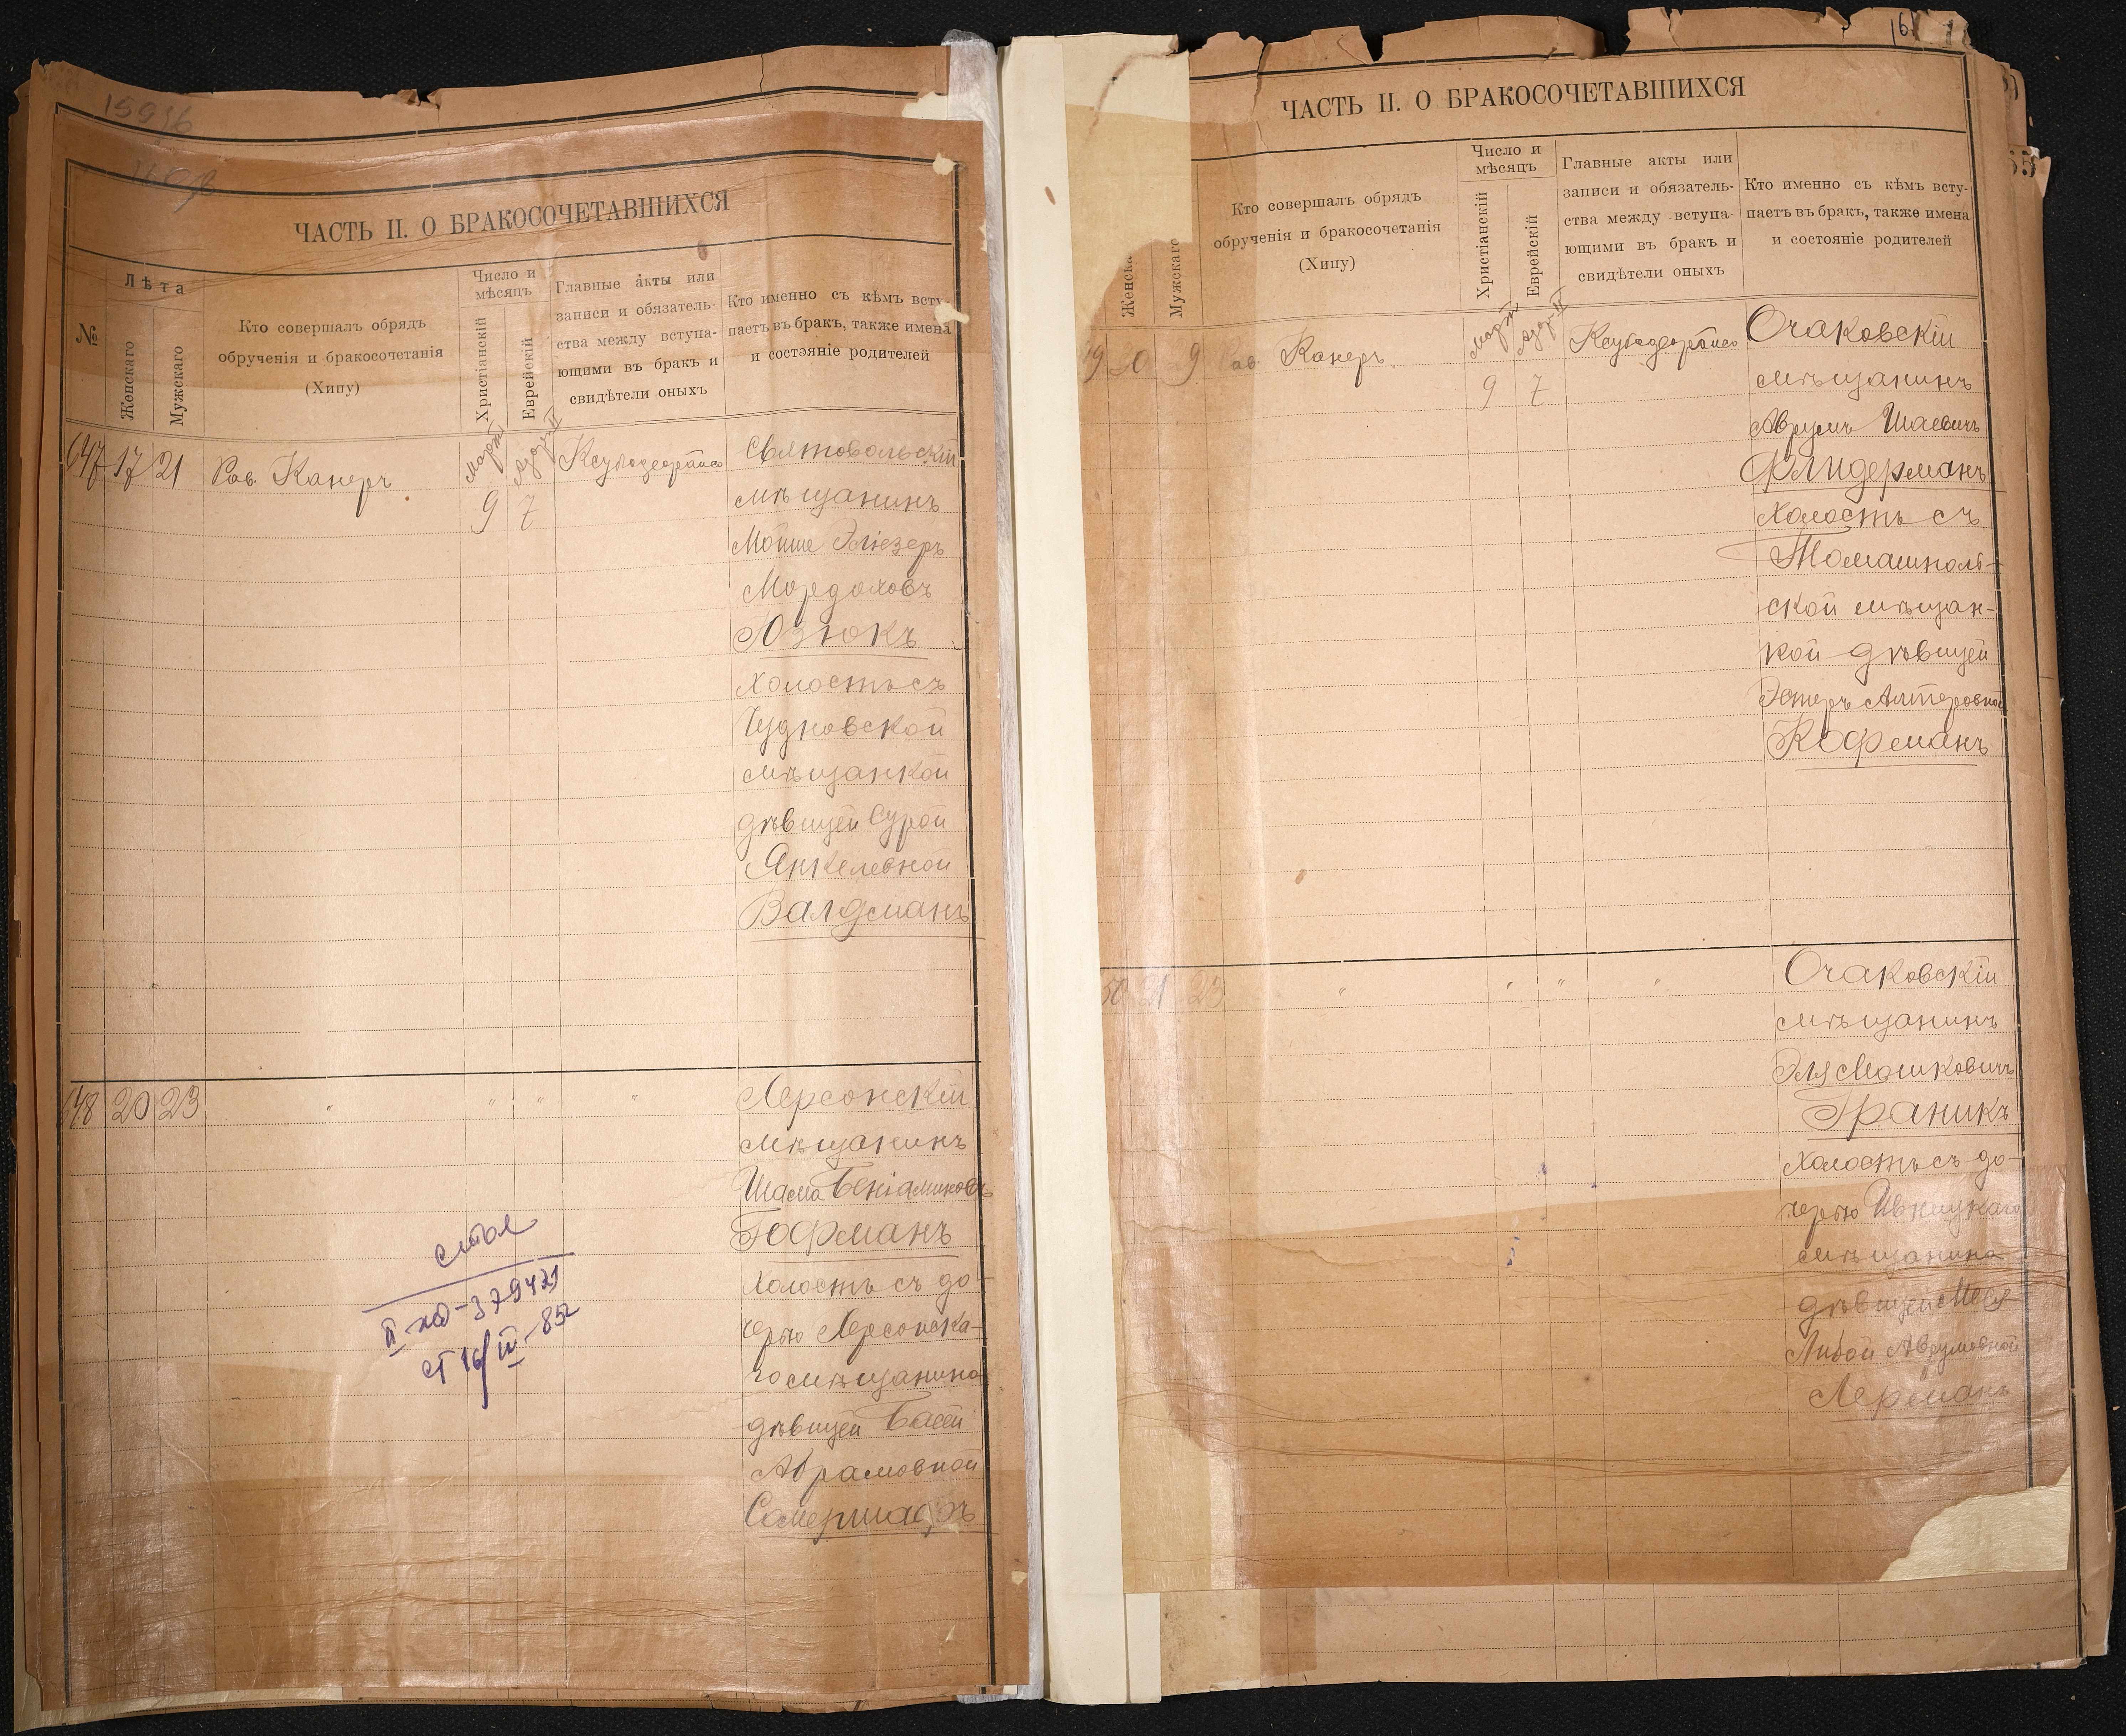 15916
ЧАСТЬ II. О БРАКОСОЧЕТАВШИХСЯ
№
Лѣта
Женскаго
Мужскаго
Кто совершалъ обрядъ
обрученія и бракосочетанія
(Хипу)
Число и
мѣсяцъ
Христіанскій
Еврейскій
Главные акты или
записи и обязатель-
ства между вступа-
ющими въ бракъ и
свидѣтели оныхъ
Кто именно съ кѣмъ всту-
паетъ въ бракъ, также имена
и состояніе родителей
647 17 21 Рав. Канеръ
Мартъ
9
Адаръ II
7
мѣщанинъ
Мойше Эліезеръ
Мордоховъ
Юзюкъ
холостъ съ
Чудновской
мѣщанкой
дѣвицей Сурой
Янкелевной
Валдманъ
648 20 23 " " " "
Херсонскій
мѣщанинъ
Шама Беніаминовъ
Гофманъ
холостъ съ до-
черью Херсонска-
го мѣщанина
дѣвицей Басей
Абрамовной
стол
II-ЖД-379421
ст 16/IV-85г
16
ЧАСТЬ II. О БРАКОСОЧЕТАВШИХСЯ
Женска
Мужскаго
Кто совершалъ обрядъ
обрученія и бракосочетанія
(Хипу)
Число и
мѣсяцъ
Христіанскій
Еврейскій
Главные акты или
записи и обязатель-
ства между вступа-
ющими въ бракъ и
свидѣтели оныхъ
Кто именно съ кѣмъ всту-
паетъ въ бракъ, также имена
и состояніе родителей
Канеръ
Мартъ
9
Адаръ II
7
Очаковскій
мѣщанинъ
Аврумъ Шаевичъ
Флидерманъ
холостъ съ
Томашполь-
ской мѣщан-
кой дѣвицей
Эстеръ Алтеровной
Кофманъ
50 21 23 " " " "
Очаковскій
мѣщанинъ
Эля Мошковичъ
Граникъ
холостъ съ до-
черью
мѣщанина
дѣвицей
Либой Аврумовной
Лерманъ